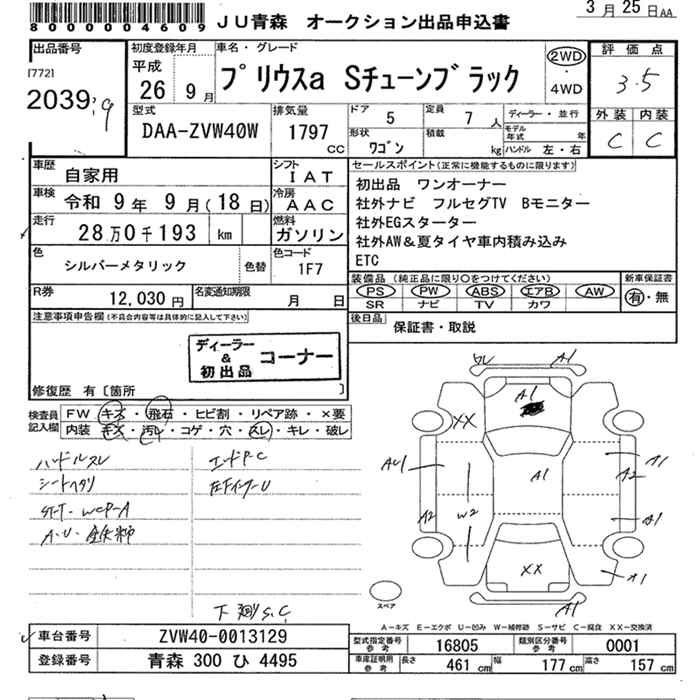 3月25日AA
8000004609 JU青森 オークション出品申込書
出品番号 初度登録年月 車名・グレード 評価点
[772] 平成 プリウスa Sチューンブラック 2WD・4WD 3.5
2039 26年9月
外装 内装
C C
型式 排気量 ドア 5 定員 7人 ディーラー・並行
DAA-ZVW40W 1797cc 形状 ワゴン 積載 kg モデル年式 年
ハンドル 左・右
車歴 自家用 シフト IAT セールスポイント(正常に機能するものに限ります)
車検 令和 9年 9月(18日) 冷房 AAC 初出品 ワンオーナー
社外ナビ フルセグTV Bモニター
走行 28万0千193 km 燃料 ガソリン 社外EGスターター
社外AW&夏タイヤ車内積み込み
色 シルバーメタリック 色替 色コード 1F7 ETC
装備品(純正品に限り○をつけてください) 新車保証書
PS PW ABS エアB AW 有・無
SR ナビ TV カワ
R券 12,030円 名変通知期限 月 日
後日品 保証書・取説
注意事項申告欄(不具合内容等は具体的に記入して下さい)
ディーラー & 初出品 コーナー
修復歴 有〔箇所 〕
検査員記入欄 FW キズ・飛石・ヒビ割・リペア跡・×要
内装 キズ・汚レ・コゲ・穴・スレ・キレ・破レ
ハンドルスレ エンドP.C
シートヘタリ 左下インナーU
ST-T-WCP-A
A・U・
下廻りS.C
A1 A1 XX AU1 A1 A1 A2 A2 W2 A1 XX A1 A1
スペア
A-キズ E-エクボ U-凹み W-補修跡 S-サビ C-腐食 XX-交換済
車台番号 ZVW40-0013129 型式指定番号参考 16805 類別区分番号参考 0001
登録番号 青森 300 ひ 4495 車庫証明用参考 長さ 461cm 幅 177cm 高さ 157cm